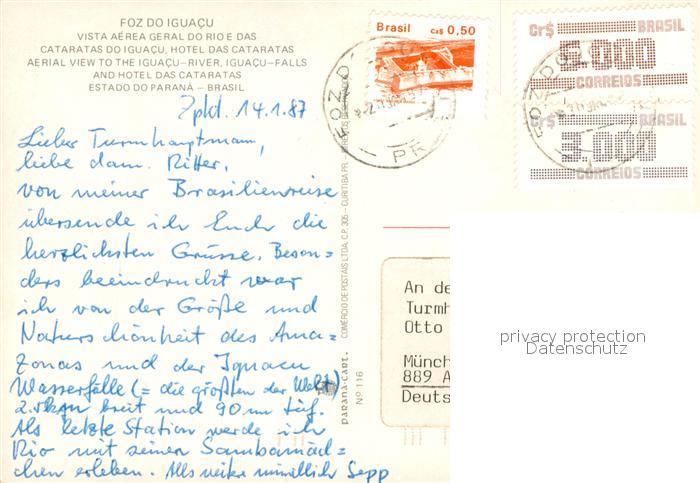 FOZ DO IGUAÇU
VISTA AÉREA GERAL DO RIO E DAS
CATARATAS DO IGUAÇU, HOTEL DAS CATARATAS
AERIAL VIEW TO THE IGUAÇU-RIVER, IGUAÇU-FALLS
AND HOTEL DAS CATARATAS
ESTADO DO PARANÁ - BRASIL
14.1.87
Lieber Turmhauptmann,
liebe dam. Ritter,
von meiner Brasilienreise
übersende ich Euch die
herzlichsten Grüsse. Beson=
ders beeindruckt war
ich von der Größe und
Naturschönheit des Ama=
zonas und der Iguacu
Wasserfälle (= die größten der Welt)
2.5km breit und 90 m tief.
Als letzte Station werde ich
Rio mit seinen Sambamäd=
chen erleben. Alles weitere mündlich Sepp
PARANÁ-CART.
Nº 116
COMÉRCIO DE POSTAIS LTDA. C.P. 305 - CURITIBA PR.
Brasil Cz$ 0,50
FOZ DO
PR
Cr$ BRASIL
5.000
CORREIOS
Cr$ BRASIL
3.000
CORREIOS
FOZ DO
An de
Turmh
Otto
Münch
889 A
Deuts
privacy protection
Datenschutz